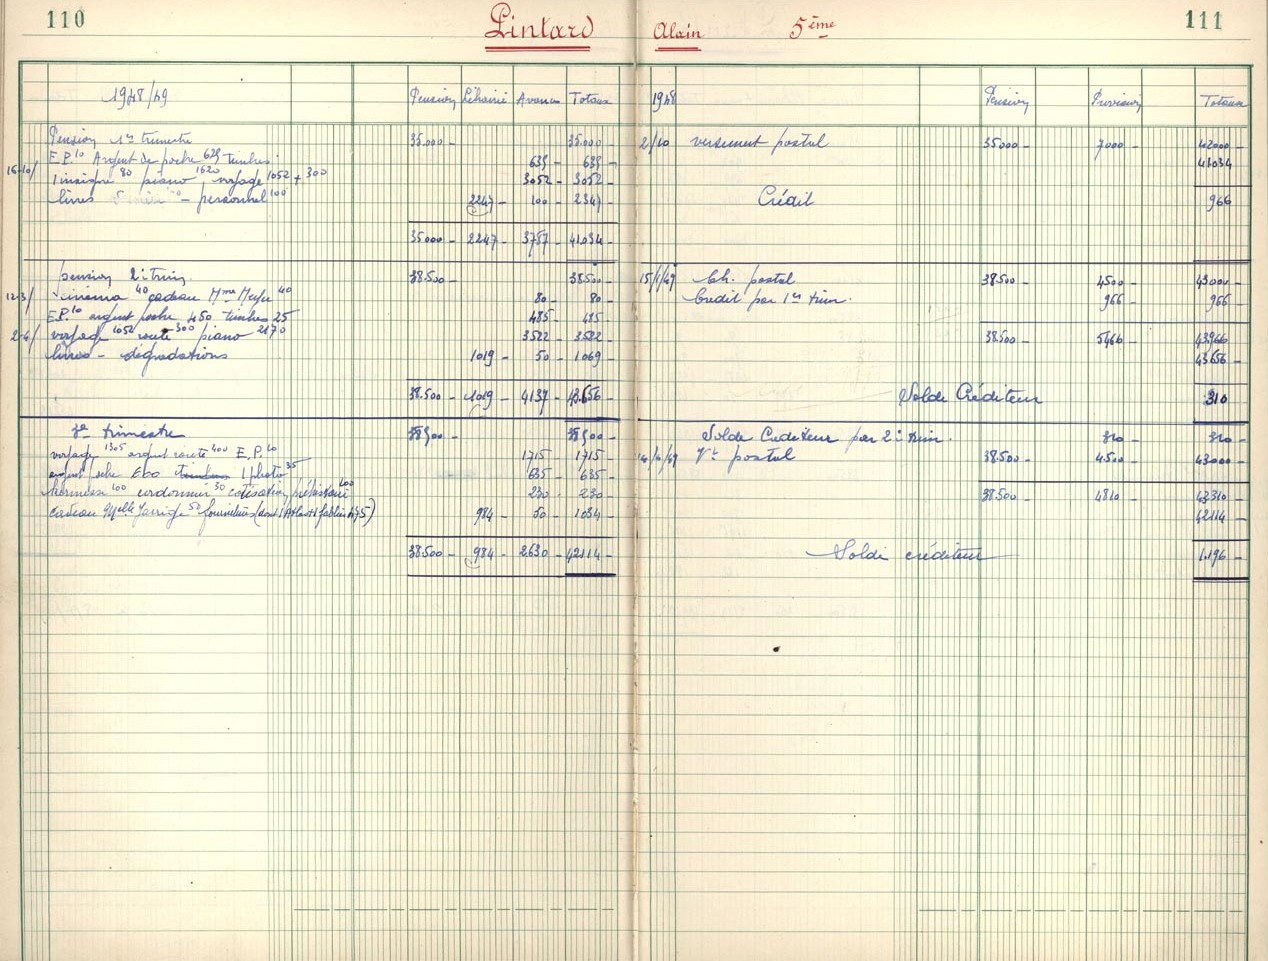 110
Pintard Alain 5ème
111
1948/49 Pension Librairie Avances Totaux
Pension 1er trimestre 35.000 - 35.000 -
E.P.10 Argent de poche 625 timbres. 635 - 635 -
16-10/ 1 insigne 80 piano 1620 voyage 1052 + 300 3052 - 3052 -
livres - personnel 100 2247 - 100 - 2347 -
35000 - 2247 - 3787 - 41.034 -
pension 2e trim. 38.500 - 38.500 -
12-3/ cinéma 40 cadeau Mme 40 80 - 80 -
E.P.10 argent poche 450 timbres 25 485 - 485 -
2-4/ voyage 1052 route 300 piano 2170 3522 - 3522 -
livres - dégradations 1019 - 50 - 1069 -
38.500 - 1019 - 4137 - 43.656 -
3e trimestre 38500 - 38500 -
voyage 1305 argent route 400 E.P.10 1715 - 1715 -
argent poche 600 timbres 1 photo 35 635 - 635 -
kermesse 100 cordonnier 30 cotisation 100 230 - 230 -
cadeau 50 fournitures (dont 1 Atlas + 1 fables 495) 984 - 50 - 1034 -
38.500 - 984 - 2630 - 42114 -
1948 Pension Provisions Totaux
2/10 versement postal 35000 - 7000 - 42000 -
41034 -
Crédit 966 -
15/1/49 Ch. postal 38.500 - 4500 - 43000 -
Crédit per 1er trim. 966 - 966 -
38.500 - 5466 - 43966 -
43656 -
Solde Créditeur 310 -
Solde Créditeur per 2e trim. 310 - 310 -
/4/49 Vt postal 38.500 - 4.500 - 43000 -
38.500 - 4810 - 43310 -
42114 -
Solde créditeur 1.196 -